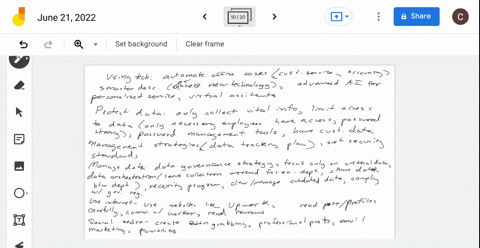 June 21, 2022
10 / 20
Share
C
Set background
Clear frame
Using tech: automate office tasks (cust. service, accounting)
smarter desc. ( new technology), advanced AI for
personalised service, virtual assistants
Protect data: only collect vital info, limit access
to data (only necessary employees have access, password
strong), password management tools, have cust. data
management strategies (data tracking plan), set security
standard,
Manage data: data governance strategy, focus only on criteral data,
data orchestration/ same collection method for ea. dept., share data
btw dept), security program, clear/manage outdated data, comply
w/ gov. reg.
Use internet- use websites like Upwork, read post/profiles
carefully, comm. w/ workers, read reviews
Social media- create grabbing, professional posts, email
marketing, promotions